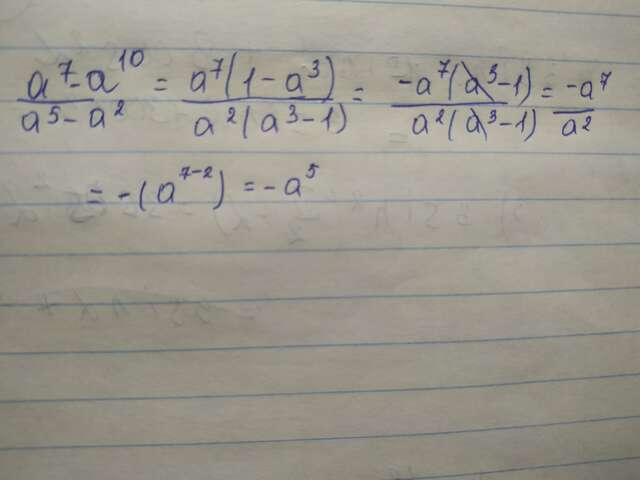 (a⁷-a¹⁰)/(a⁵-a²) = (a⁷(1-a³))/(a²(a³-1)) = (-a⁷(a³-1))/(a²(a³-1)) = (-a⁷)/(a²)
= -(a⁷⁻²) = -a⁵